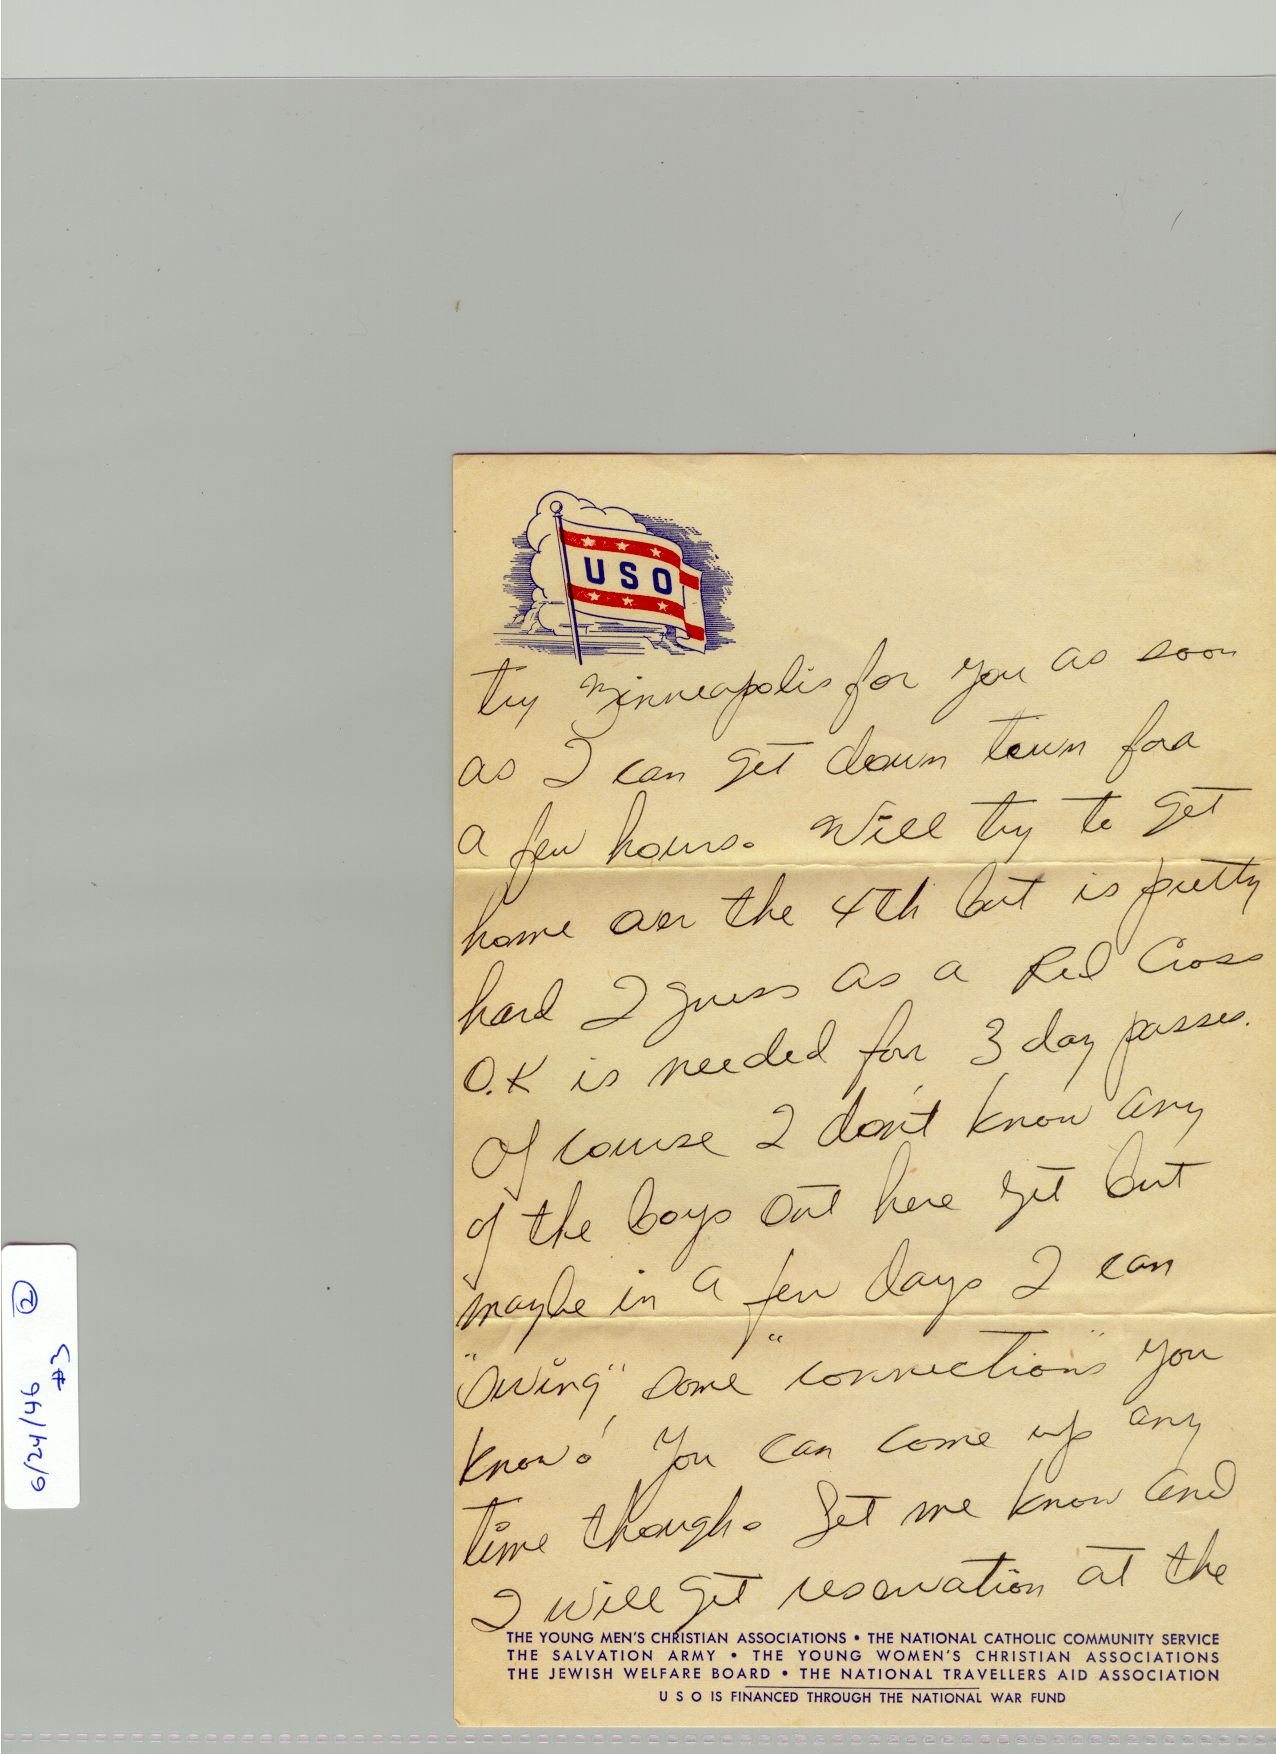 USO
try Minneapolis for you as soon
as I can get down town for a
a few hours. Will try to get
home over the 4th but is pretty
hard I guess as a Red Cross
O.K is needed for 3 day passes.
Of course I don't know any
of the boys out here yet but
maybe in a few days I can
"swing" some "connections" you
know! You can come up any
time though. Let me know and
I will get reservation at the
THE YOUNG MEN'S CHRISTIAN ASSOCIATIONS • THE NATIONAL CATHOLIC COMMUNITY SERVICE
THE SALVATION ARMY • THE YOUNG WOMEN'S CHRISTIAN ASSOCIATIONS
THE JEWISH WELFARE BOARD • THE NATIONAL TRAVELLERS AID ASSOCIATION
U S O IS FINANCED THROUGH THE NATIONAL WAR FUND
6/24/46 2
#3